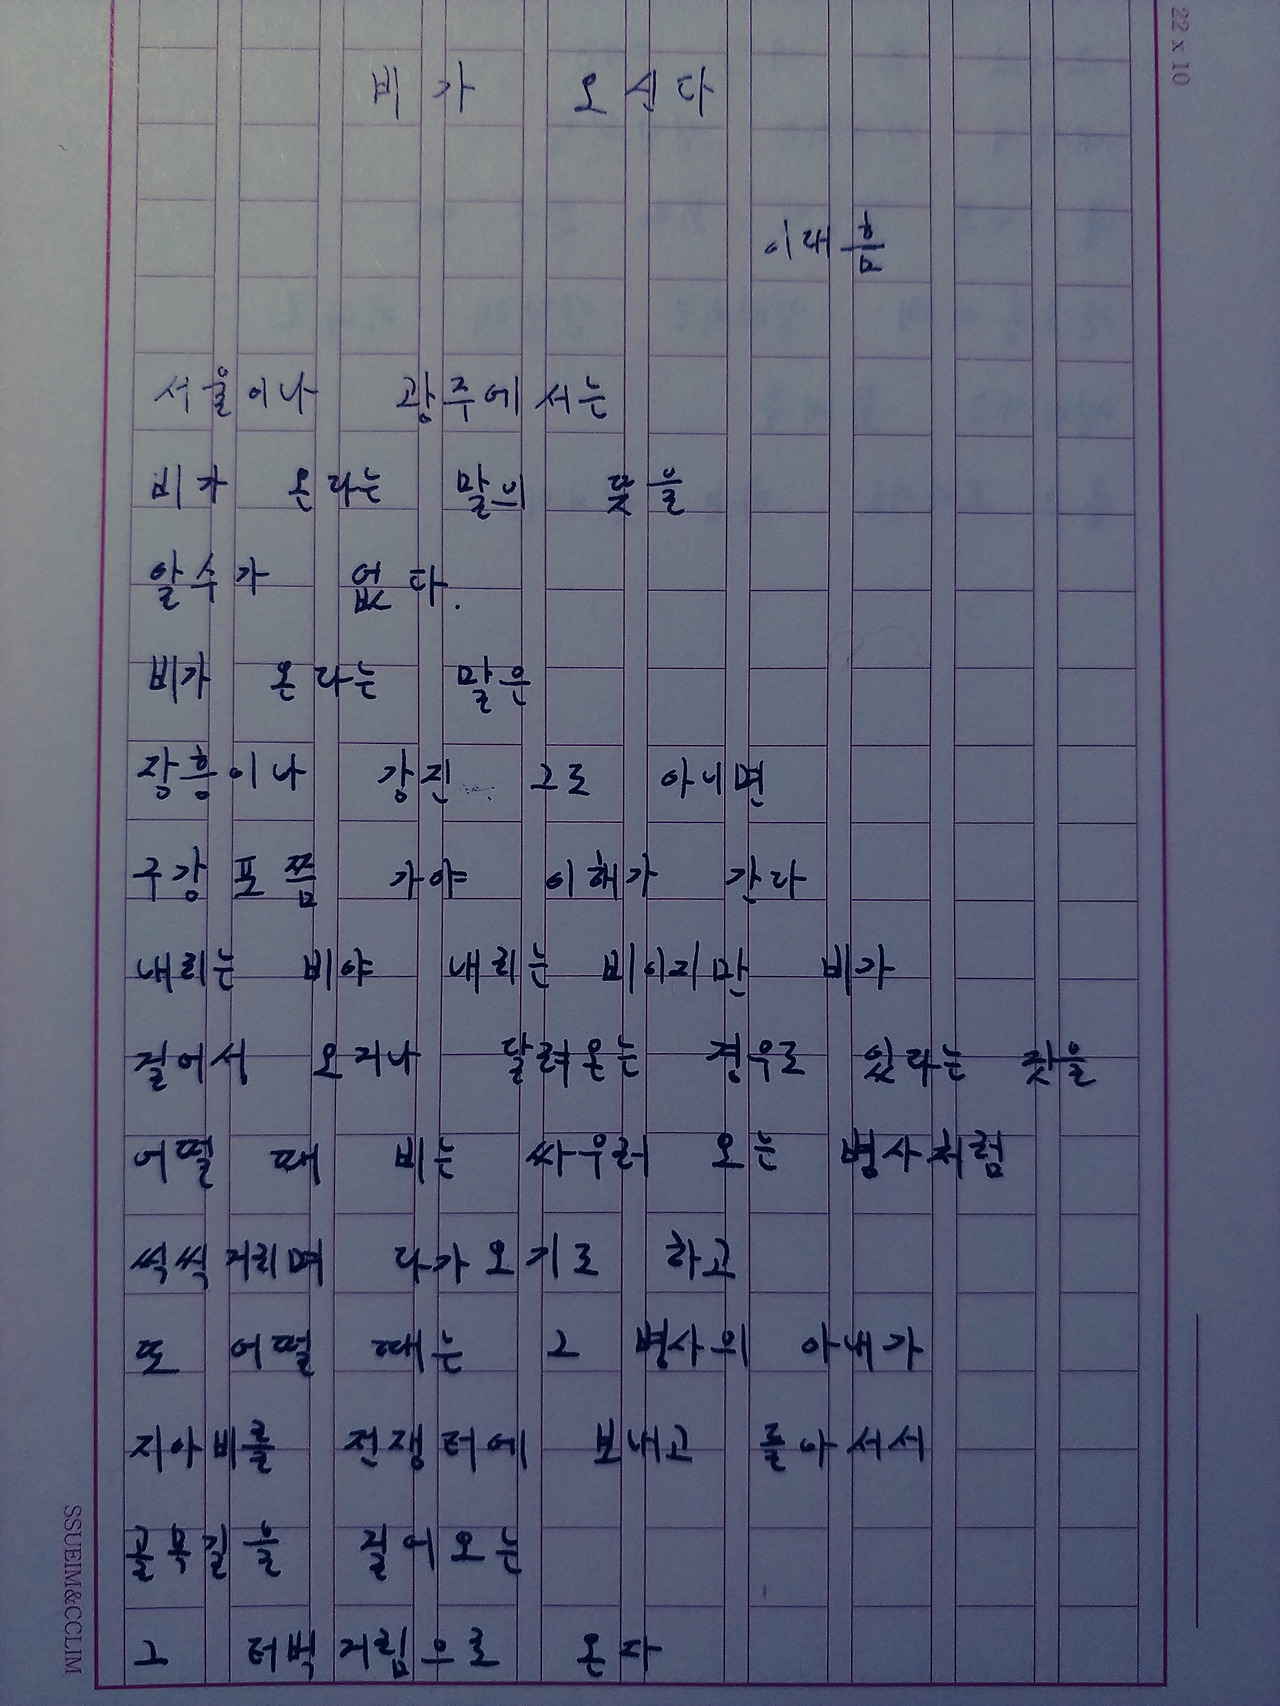 22 x 10
비가 오신다
이대흠
서울이나 광주에서는
비가 온라는 말의 뜻을
알수가 없다.
비가 온라는 말은
장흥이나 강진 그도 아니면
구강포쯤 가야 이해가 간다
내리는 비야 내리는 비이지만 비가
걸어서 오거나 달려온는 경우도 있라는 것을
어떨 때 비는 싸우러 오는 병사처럼
씩씩거리며 다가오기도 하고
또 어떨 때는 그 병사의 아내가
지아비를 전쟁터에 보내고 돌아서서
골목길을 걸어오는
그 터벅거림으로 온다
SSUEIM&CCLIM